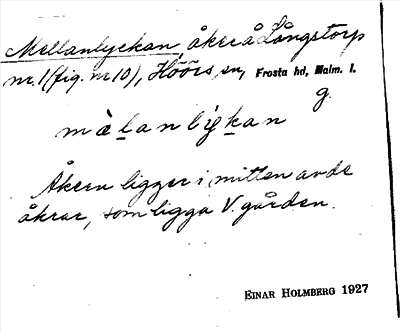 Mellanlyckan, åker å Långstorp
nr. 1 (fig. nr 10), Höörs sn, Frosta hd, Malm. l.
g.
mὰlanlykan
Åkern ligger i mitten av de
åkrar, som ligga V. gården.
EINAR HOLMBERG 1927